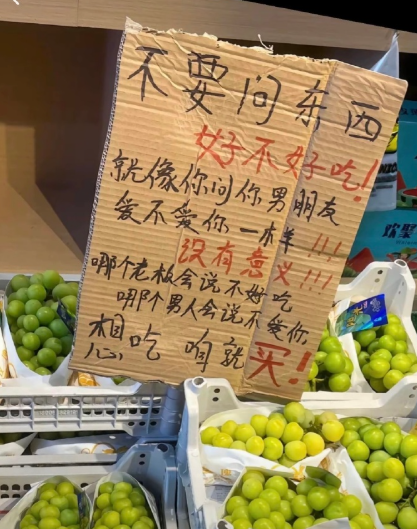 不要问东西
好不好吃!
就像你问你男朋友
爱不爱你一样!!!
没有意义!!!
哪个老板会说不好吃
哪个男人会说不爱你
想吃 咱就买!
欢聚